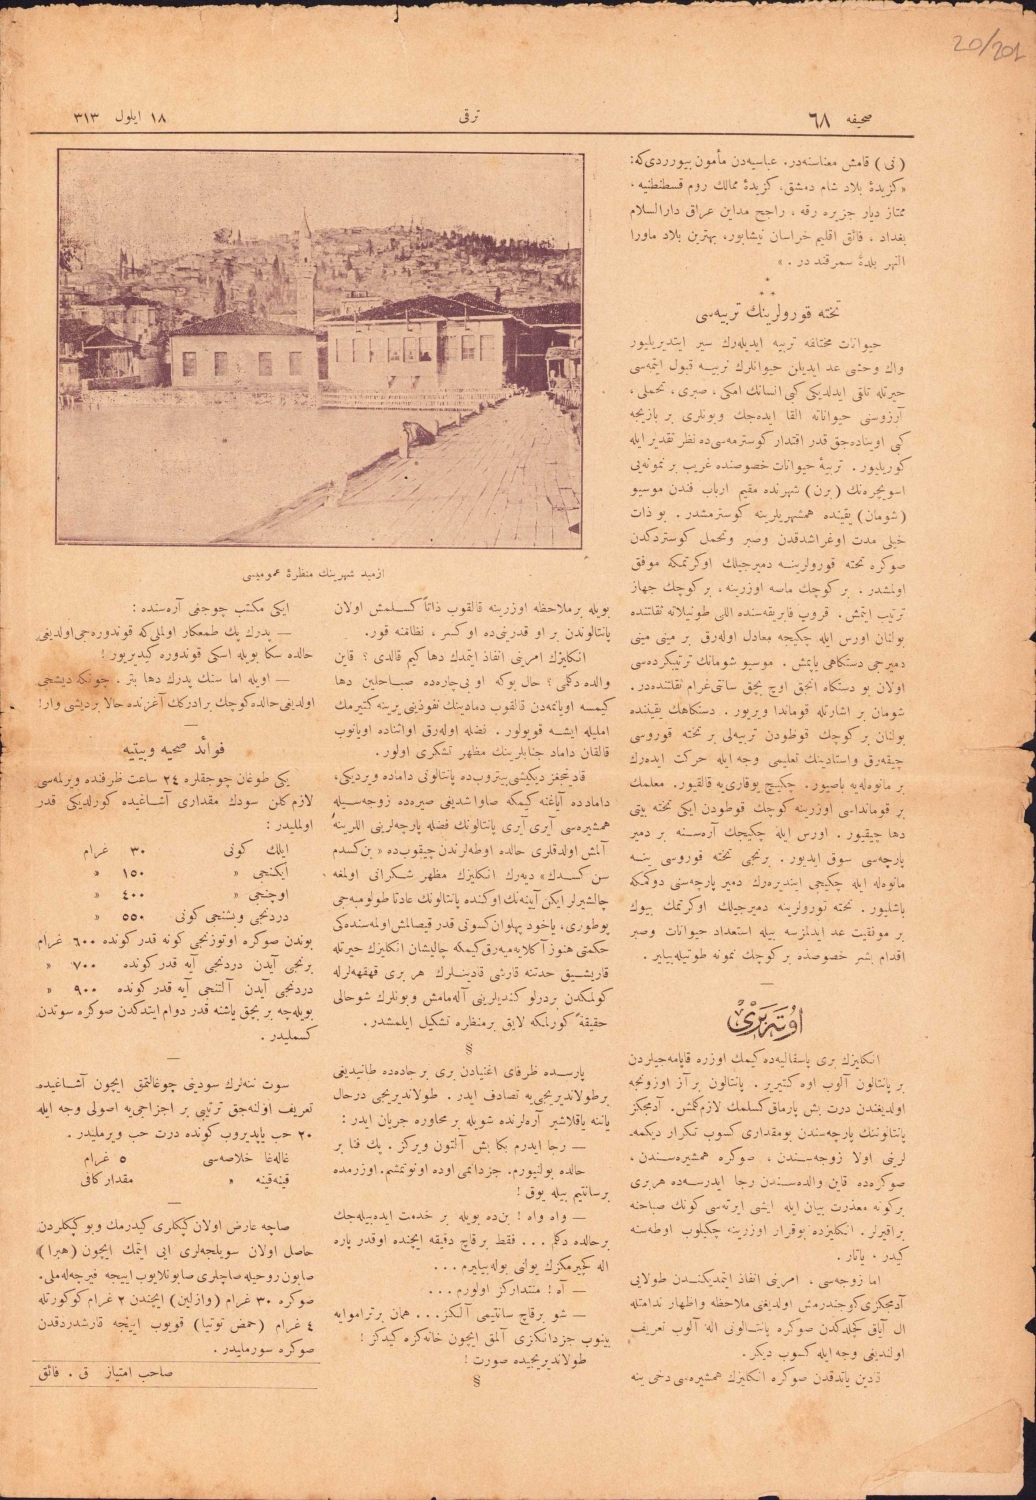 20/201
صحیفه ٦٨
ترقی
١٨ ایلول ٣١٣
(نی) قامش معناسنه‌در. عباسیه‌دن مأمون بیوردی‌که:
«کزیدهٔ بلاد شام دمشق، کزیدهٔ ممالك روم قسطنطنیه،
ممتاز دیار جزیره رقه، راجح مداین عراق دارالسلام
بغداد، فائق اقلیم خراسان نیشابور، بهترین بلاد ماورا
النهر بلدهٔ سمرقند در.»
تخته قورولرینك تربیه‌سی
حیوانات مختلفه تربیه ایدیله‌رك سیر ایتدیریلیور
واك وحشی عد ایدیلن حیوانلرك تربیه قبول ایتمه‌سی
حیرتله تلقی ایدلدیکی کبی انسانك امکی، صبری، تحملی،
آرزوسی حیواناته القا ایده‌جك وبونلری بر بازیچه
کبی اویناده‌جق قدر اقتدار کوسترمه‌سی‌ده نظر تقدیر ایله
کوریلیور. تربیهٔ حیوانات خصوصنده غریب بر نمونه‌یی
اسویچره‌نك (برن) شهرنده مقیم ارباب فندن موسیو
(شومان) یقینده همشهریلرینه کوسترمشدر. بو ذات
خیلی مدت اوغراشدقدن وصبر وتحمل کوستردکدن
صوکره تخته قورولرینه دمیرجیلك اوکرتمکه موفق
اولمشدر. بر کوچك ماصه اوزرینه، بر کوچك جهاز
ترتیب ایتمش. قروپ فابریقه‌سنده اللی طونیلاته ثقلتنده
بولنان اورس ایله چکیجه معادل اوله‌رق بر مینی مینی
دمیرجی دستکاهی یاپمش. موسیو شومانك ترتیبکرده‌سی
اولان بو دستکاه انجق اوچ بچق سانتی‌غرام ثقلتنده‌در.
شومان بر اشارتله قوماندا ویریور. دستکاهك یقیننده
بولنان بر کوچك قوطودن تربیه‌لی بر تخته قوروسی
چیقه‌رق واستادینك تعلیمی وجه ایله حرکت ایده‌رك
بر مانوه‌له‌یه باصیور. چکیچ یوقاری‌یه قالقیور. معلمك
بر قومانداسی اوزرینه کوچك قوطودن ایکی تخته بیتی
دها چیقیور. اورس ایله چکیجك آره‌سنه بر دمیر
پارچه‌سی سوق ایدیور. برنجی تخته قوروسی ینه
مانوه‌له ایله چکیجی ایندیره‌رك دمیر پارچه‌سنی دوکمکه
باشلیور. تخته قورولرینه دمیرجیلك اوکرتمك بیوك
بر موفقیت عد ایدلمزسه بیله استعداد حیوانات وصبر
اقدام بشر خصوصنده بر کوچك نمونه طوتیله‌بیلیر.
اوته‌بری
انکلیزك بری پاسقالیه‌ده کیمك اوزره قاپامه‌جیلردن
بر پانتالون آلوب اوه کتیریر. پانتالون براز اوزونجه
اولدیغندن درت بش پارماق کسلمك لازم‌کلمش. آدمجکز
پانتالوننك پارچه‌سندن بومقداری کسوب تکرار دیکمه‌
لرینی اولا زوجه‌سندن، صوکره همشیره‌سندن،
صوکره‌ده قاین والده‌سندن رجا ایدرسه‌ده هربری
برکونه معذرت بیان ایله ایشی ایرته‌سی کونك صباحنه
براقیرلر. انکلیزده بوقرار اوزرینه چکیلوب اوطه‌سنه
کیدر، یاتار.
اما زوجه‌سی، امرینی انفاذ ایتمدیکندن طولایی
آدمجکزی کوجندرمش اولدیغنی ملاحظه واظهار ندامتله
ال آیاق چکلدکدن صوکره پانتالونی اله آلوب تعریف
اولندیغی وجه ایله کسوب دیکر.
قادین یاتدقدن صوکره انکلیزك همشیره‌سی دخی ینه
ازمید شهرینك منظرهٔ عمومیسی
بویله برملاحظه اوزرینه قالقوب ذاتاً کسلمش اولان
پانتالوندن بر او قدرینی‌ده اوکسر، نظامنه قور.
انکلیزك امرینی انفاذ ایتمدك دها کیم قالدی؟ قاین
والده دکلمی؟ حال بوکه او بی‌چاره‌ده صباحلین دها
کیمسه اویانمه‌دن قالقوب دامادینك نفوذینی یرینه کتیرمك
املیله ایشه قویولور. فضله اوله‌رق اواثناده اویانوب
قالقان داماد جنابلرینك مظهر تشکری اولور.
قادینجغز دیکیشی بیتروب‌ده پانتالونی داماده ویردیکی،
دامادده آیاغنه کیمکه صاواشدیغی صیره‌ده زوجه‌سیله
همشیره‌سی آیری آیری پانتالونك فضله پارچه‌لرینی اللرینه
آلمش اولدقلری حالده اوطه‌لرندن چیقوب‌ده «بن کسدم
سن کسدك» دیه‌رك انکلیزك مظهر شکرانی اولمغه
چالشیرلر ایکن آیینه‌نك اوکنده پانتالونك عادتا طولومبه‌جی
پوطوری، یاخود پهلوان کسوتی قدر قیصالمش اولمه‌سنده‌کی
حکمتی هنوز آکلایه‌میه‌رق کیمکه چالیشان انکلیزك حیرتله
قاریشیق حدتنه قارشی قادینلرك هر بری قهقهه‌لرله
کولمکدن بردرلو کندیلرینی آله‌مامش وبونلرك شوحالی
حقیقةً کورلمکه لایق برمنظره تشکیل ایلمشدر.
§
پارسده ظرفای اغنیادن بری بر جاده‌ده طانیدیغی
برطولاندیریجی‌یه تصادف ایدر. طولاندیریجی درحال
یاننه یاقلاشیر آره‌لرنده شویله بر محاوره جریان ایدر:
— رجا ایدرم بکا بش آلتون ویرکز. پك فنا بر
حالده بولنیورم. جزدانمی اوده اونوتمشم. اوزرمده
برسانتیم بیله یوق!
— واه واه! بن‌ده بویله بر خدمت ایده‌بیله‌جك
برحالده دکلم ... فقط برقاچ دقیقه ایچنده اوقدر پاره
اله کچیرمکزك یولنی بوله‌بیلیرم ...
— آه! منتدارکز اولورم ...
— شو برقاچ سانتیمی آلکز ... همان برتراموایه
بینوب جزدانکزی آلمق ایچون خانه‌کزه کیدکز!
طولاندیریجیده صورت!
§
ایکی مکتب چوجغی آره‌سنده:
— پدرك پك طمعکار اولملی‌که قوندوره‌جی اولدیغی
حالده سکا بویله اسکی قوندوره کیدیریور!
— اویله اما سنك پدرك دها بتر. چونکه دیشجی
اولدیغی حالده کوچك برادرکك آغزنده حالا بردیشی وار!
فوائد صحیه وبیتیه
یکی طوغان چوجقلره ٢٤ ساعت ظرفنده ویرلمه‌سی
لازم‌کلن سودك مقداری آشاغیده کورلدیکی قدر
اولملیدر:
ایلك کونی ٣٠ غرام
ایکنجی » ١٥٠ »
اوچنجی » ٤٠٠ »
دردنجی وبشنجی کونی ٥٥٠ »
بوندن صوکره اوتوزنجی کونه قدر کونده ٦٠٠ غرام
برنجی آیدن دردنجی آیه قدر کونده ٧٠٠ »
دردنجی آیدن آلتنجی آیه قدر کونده ٩٠٠ »
بویله‌جه بر بچق یاشنه قدر دوام ایتدکدن صوکره سوتدن
کسملیدر.
سوت ننه‌لرك سودینی چوغالتمق ایچون آشاغیده
تعریف اولنه‌جق ترتیبی بر اجزاجی‌یه اصولی وجه ایله
٢٠ حب یاپدیروب کونده درت حب ویرملیدر.
غاله‌غا خلاصه‌سی ٥ غرام
قینه‌قینه » مقدارکافی
صاچه عارض اولان کپکلری کیدرمك وبوکپکلردن
حاصل اولان سویلجه‌لری ایی ایتمك ایچون (هبرا)
صابون روحیله صاچلری صابونلایوب اییجه فیرچه‌له‌ملی.
صوکره ٣٠ غرام (وازلین) ایچندن ٢ غرام کوکورتله
٤ غرام (حمض توتیا) قویوب اییجه قارشدردقدن
صوکره سورملیدر.
صاحب امتیاز ق. فائق